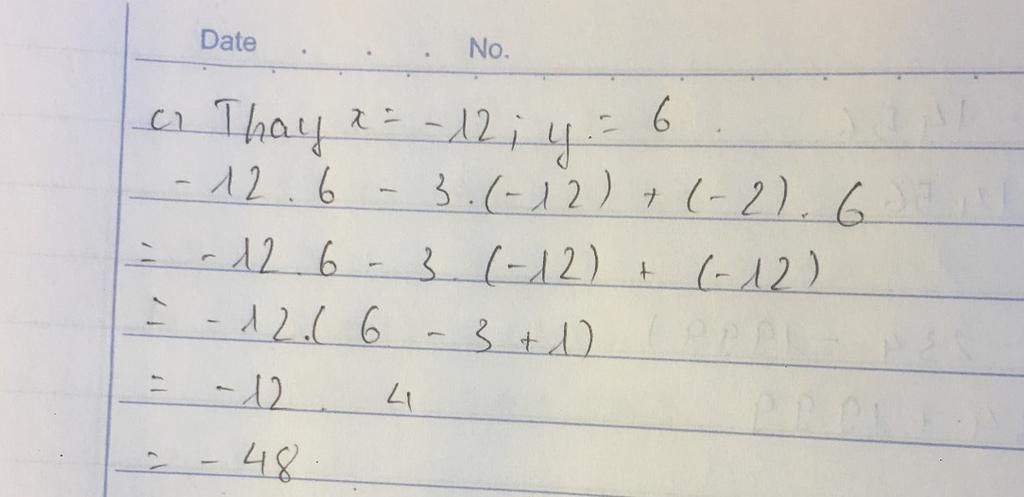 Date . . . No.
c) Thay x = -12 ; y = 6 .
- 12 . 6 - 3 . (-12) + (-2) . 6
= -12 . 6 - 3 . (-12) + (-12)
= -12 . ( 6 - 3 + 1)
= -12 . 4
= - 48 .